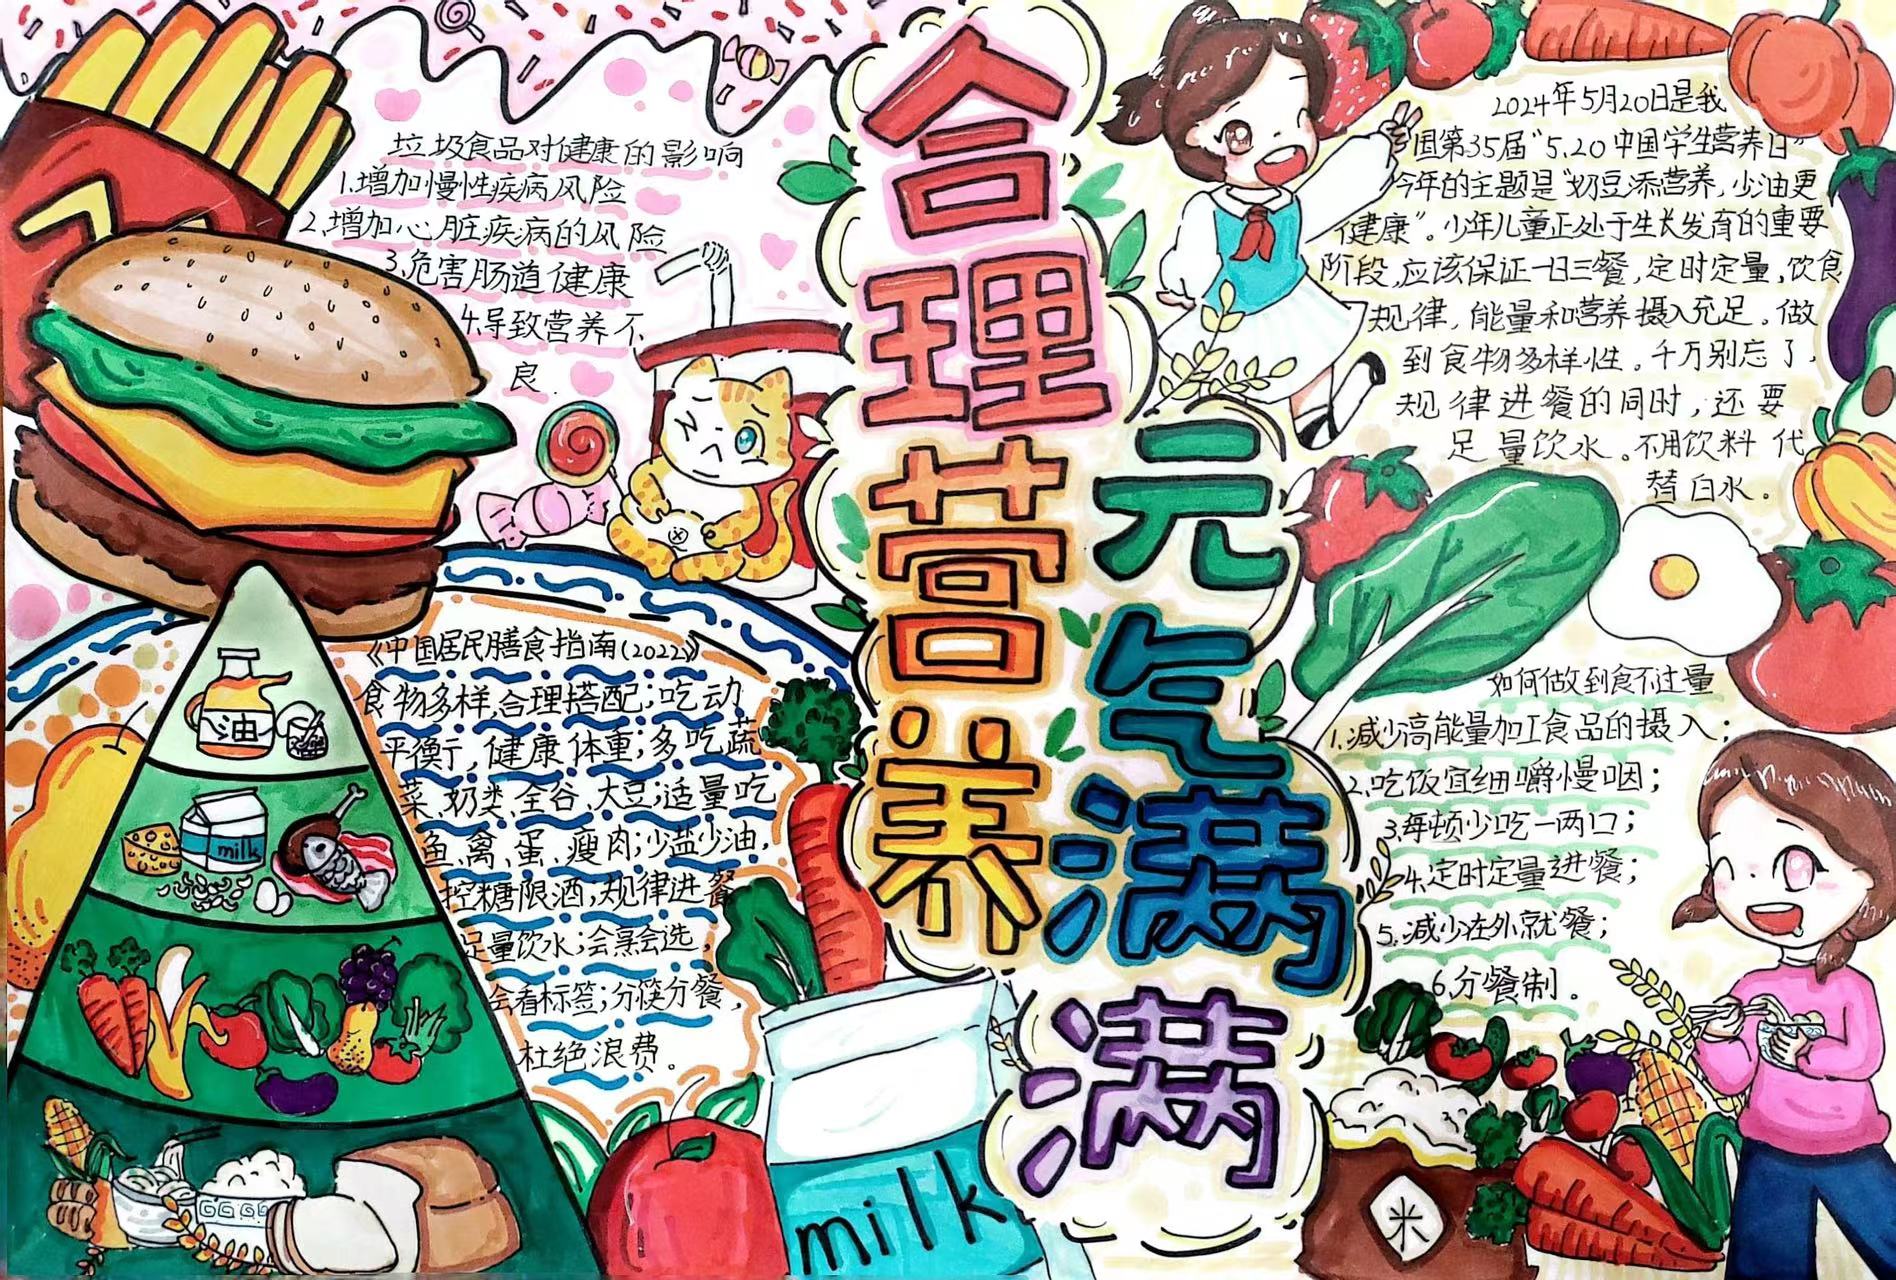 合理营养
元气满满
垃圾食品对健康的影响
1.增加慢性疾病风险
2.增加心脏疾病的风险
3.危害肠道健康
4.导致营养不
良.
2024年5月20日是我
国第35届"5.20中国学生营养日"
今年的主题是"奶豆添营养,少油更
健康"。少年儿童正处于生长发育的重要
阶段,应该保证一日三餐,定时定量,饮食
规律,能量和营养摄入充足。做
到食物多样性。千万别忘了,
规律进餐的同时,还要
足量饮水。不用饮料代
替白水。
《中国居民膳食指南(2022)》
食物多样,合理搭配;吃动
平衡,健康体重;多吃蔬
菜、奶类、全谷、大豆;适量吃
鱼、禽、蛋、瘦肉;少盐少油,
控糖限酒,规律进餐
足量饮水;会烹会选,
会看标签;分筷分餐,
杜绝浪费。
如何做到食不过量
1.减少高能量加工食品的摄入;
2.吃饭宜细嚼慢咽;
3.每顿少吃一两口;
4.定时定量进餐;
5.减少在外就餐;
6.分餐制。
油
milk
milk
米